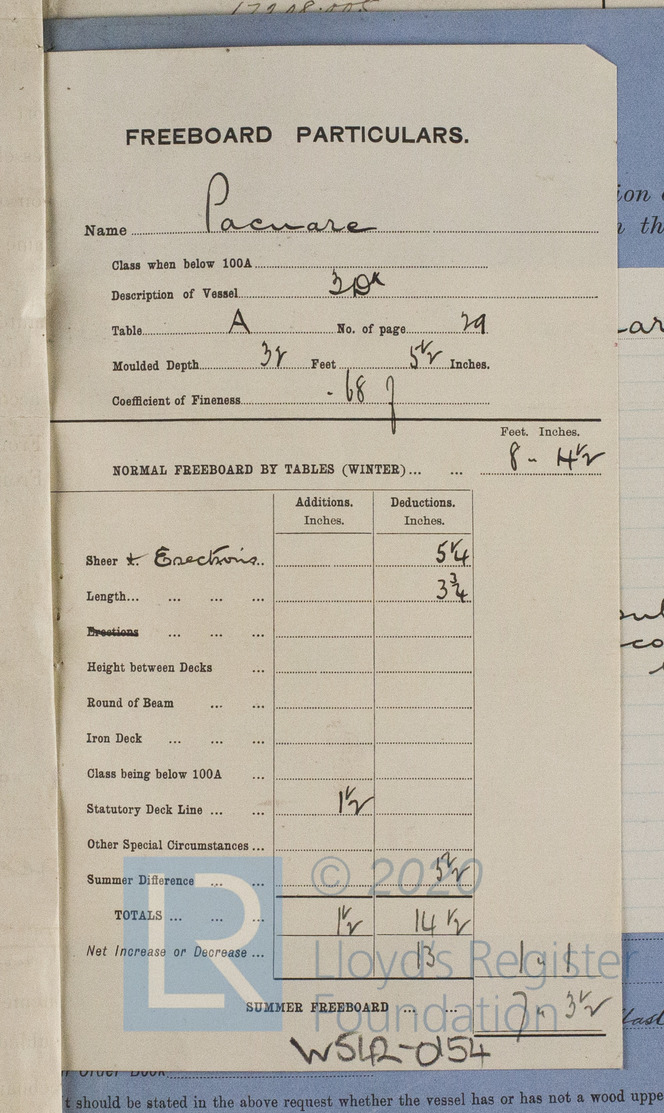 FREEBOARD PARTICULARS.
Name Pacuare
Class when below 100A
Description of Vessel 3 Dk
Table A No. of page 29
Moulded Depth 32 Feet 5½ Inches.
Coefficient of Fineness ·68
Feet. Inches.
NORMAL FREEBOARD BY TABLES (WINTER) ... ... 8 - 4½
Additions. Deductions.
Inches. Inches.
Sheer & Erections.. 5¼
Length... ... ... ... 3¾
Erections ... ... ...
Height between Decks ...
Round of Beam ... ...
Iron Deck ... ... ...
Class being below 100A ...
Statutory Deck Line ... ... 1½
Other Special Circumstances ...
Summer Difference ... ... 5½
TOTALS ... ... ... 1½ 14½
Net Increase or Decrease ... 13 1 - 1
SUMMER FREEBOARD ... ... 7 - 3½
W512-0154
© 2020
Lloyd's Register
Foundation
LR
Order Book
t should be stated in the above request whether the vessel has or has not a wood uppe